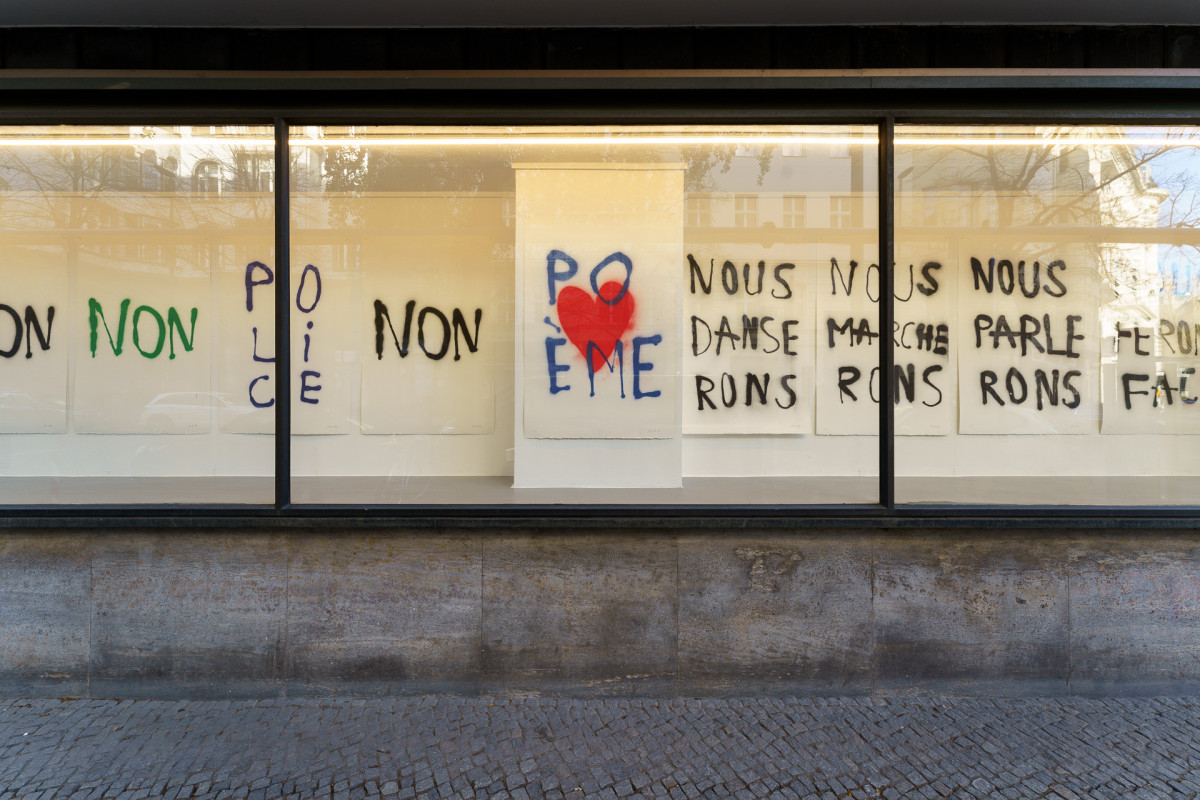 ON
NON
PO
Li
CE
NON
PO
ÈME
NOUS
DANSE
RONS
NOUS
MARCHE
RONS
NOUS
PARLE
RONS
FERON
FAC